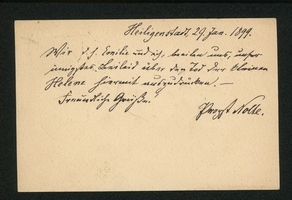 Heiligenstadt, 29. Jan. 1899.
Wir d. h. Emilie und ich, beeilen uns, unser
innigstes Beileid über den Tod der kleinen
Helene hiermit auszudrücken. —
Freundliche Grüße.
Propst Nolte.